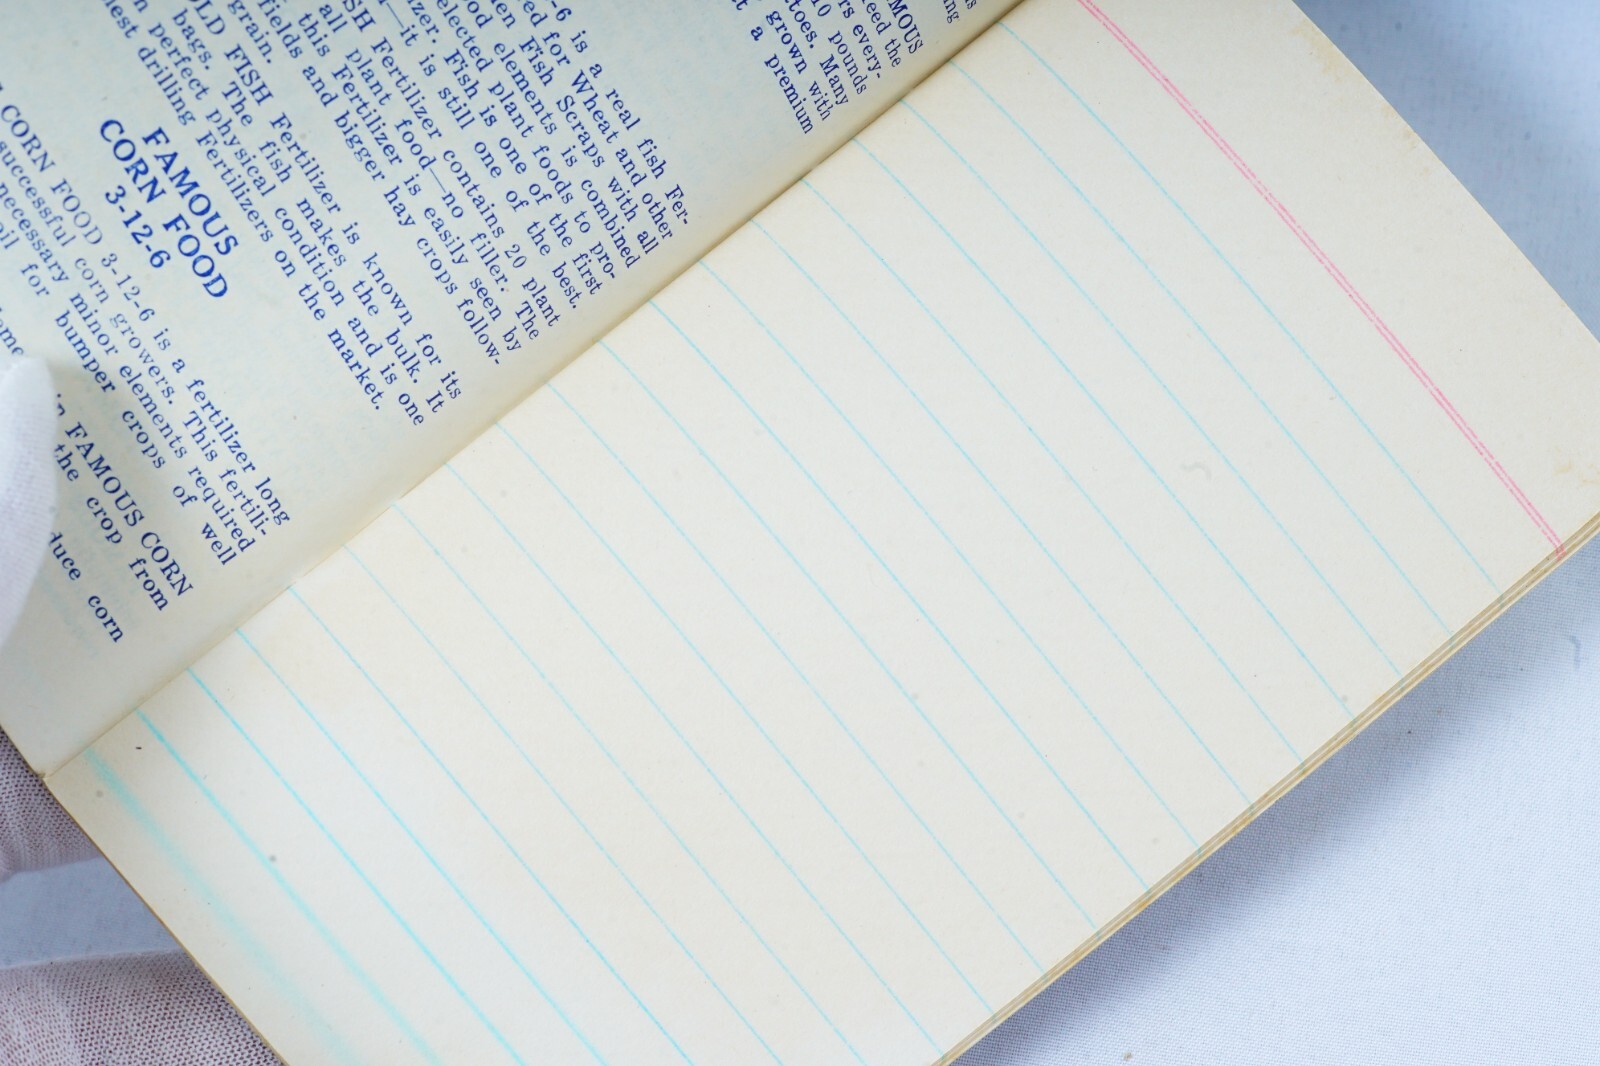 AMOUS
the
every-
10 pounds
Many
grown with
a premium
-6 is a real fish Fer-
for Wheat and other
Fish Scraps with all
elements is combined
elected plant foods to pro-
Fish is one of the first
—it is still one of the best.
Fertilizer contains 20 plant
all plant food—no filler. The
this Fertilizer is easily seen by
fields and bigger hay crops follow-
grain.
OLD FISH Fertilizer is known for its
bags. The fish makes the bulk. It
perfect physical condition and is one
drilling Fertilizers on the market.
FAMOUS
CORN FOOD
3-12-6
CORN FOOD 3-12-6 is a fertilizer long
successful corn growers. This fertili-
necessary minor elements required
for bumper crops of well
FAMOUS CORN
the crop from
duce corn